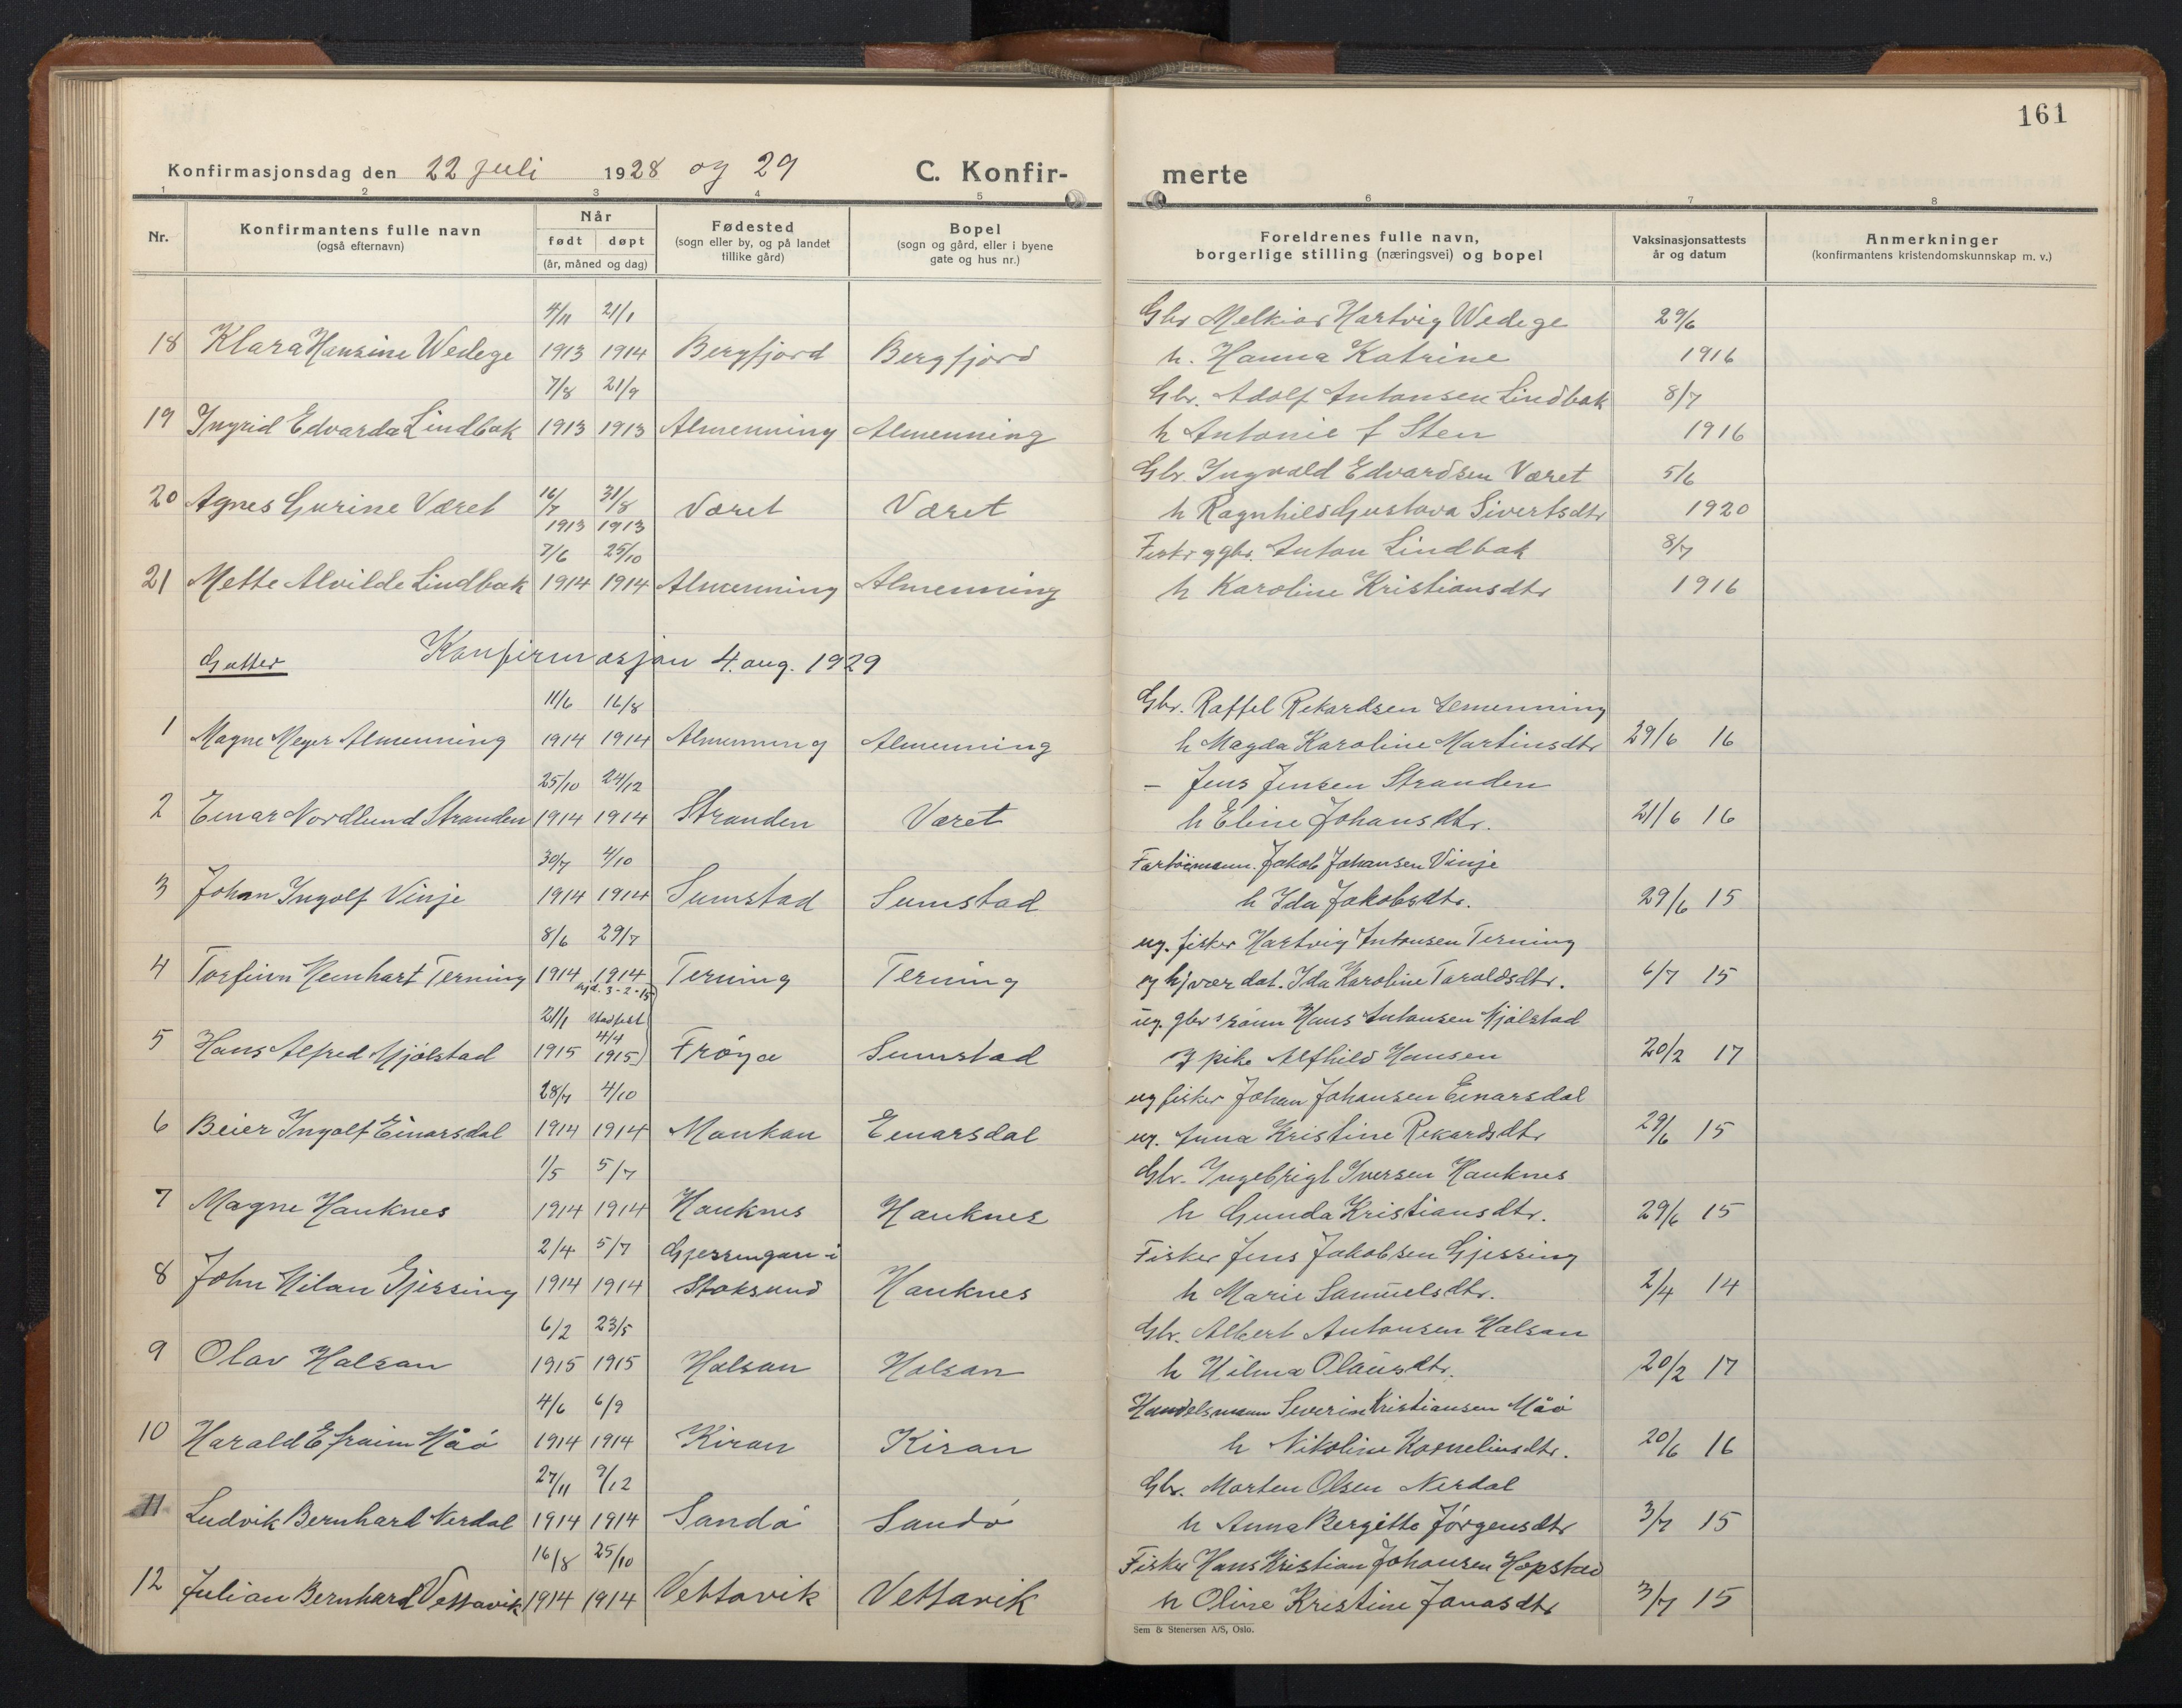 161
Konfirmasjonsdag den 22 juli 1928 og 29 C. Konfir- merte
1 2 3 4 5 6 7 8
Nr. Konfirmantens fulle navn (også efternavn) Når født døpt (år, måned og dag) Fødested (sogn eller by, og på landet tillike gård) Bopel (sogn og gård, eller i byene gate og hus nr.) Foreldrenes fulle navn, borgerlige stilling (næringsvei) og bopel Vaksinasjonsattests år og datum Anmerkninger (konfirmantens kristendomskunnskap m. v.)
4/11 21/1 Gbr Melkior Hartvig Wedege 29/6
18 Klara Hansine Wedege 1913 1914 Bergfjord Bergfjord h. Hanna Katrine 1916
7/8 21/9 Gbr. Adolf Antonsen Lindbak 8/7
19 Ingrid Edvarda Lindbak 1913 1913 Almenning Almenning h Antonie f Sten 1916
Gbr. Ingvald Edvardsen Været 5/6
20 Agnes Gurine Været 16/7 31/8 Været Været h Ragnhild Gustava Sivertsdtr 1920
1913 1913
7/6 25/10 Fisker og gbr. Anton Lindbak 8/7
21 Mette Alvilde Lindbak 1914 1914 Almenning Almenning h Karoline Kristiansdtr 1916
Gutter Konfirmasjon 4. aug. 1929
11/6 16/8 Gbr. Raffel Rekardsen Almenning
1 Magne Meyer Almenning 1914 1914 Almenning Almenning h Magda Karoline Martinsdtr 29/6 16
25/10 24/12 – Jens Jensen Stranden
2 Einar Nordlund Stranden 1914 1914 Stranden Været h Eline Johansdtr. 21/6 16
30/7 4/10 Fartöimann. Jakob Johansen Vinje
3 Johan Ingolf Vinje 1914 1914 Sumstad Sumstad h Ida Jakobsdtr. 29/6 15
8/6 29/7 ug. fisker Hartvig Antonsen Terning
4 Torfinn Meinhart Terning 1914 1914 Terning Terning og hjværdat. Ida Karoline Taraldsdtr. 6/7 15
hjd. 3-2-15
21/1 Stadfest ug. gbr sönn Hans Antonsen Mjölstad
5 Hans Alfred Mjölstad 1915 4/4 1915) Fröya Sumstad og pike Alfhild Hansen 20/2 17
28/7 4/10 ug fisker Johan Johansen Einarsdal
6 Beier Ingolf Einarsdal 1914 1914 Monkan Einarsdal ug. Anna Kristine Rekardsdtr 29/6 15
1/5 5/7 Gbr. Ingebrigt Iversen Hauknes
7 Magne Hauknes 1914 1914 Hauknes Hauknes h Gunda Kristiansdtr. 29/6 15
2/4 5/7 Gjessingan i Fisker Jens Jakobsen Gjessing
8 John Milan Gjessing 1914 1914 Stoksund Hauknes h Marie Samuelsdtr. 2/4 14
6/2 23/5 Gbr. Albert Antonsen Halsan
9 Olav Halsan 1915 1915 Halsan Halsan h Hilma Olausdtr. 20/2 17
4/6 6/9 Handelsmann Severin Kristiansen Måö
10 Harald Efraim Måö 1914 1914 Kiran Kiran h Nikoline Kornelinsdtr. 20/6 16
27/11 9/12 Gbr. Morten Olsen Nerdal
11 Ludvik Bernhard Nerdal 1914 1914 Sandö Sandö h Anna Bergitte Jörgensdtr 3/7 15
16/8 25/10 Fisker Hans Kristian Johansen Hopstad
12 Julian Bernhard Vettavik 1914 1914 Vettavik Vettavik h Oline Kristine Jonasdtr 3/7 15
Sem & Stenersen A/S, Oslo.